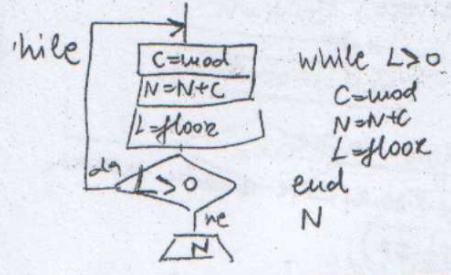 hile
C=mod
N=N+C
L=floor
da
L>0
ne
N
while L>0
C=mod
N=N+C
L=floor
end
N